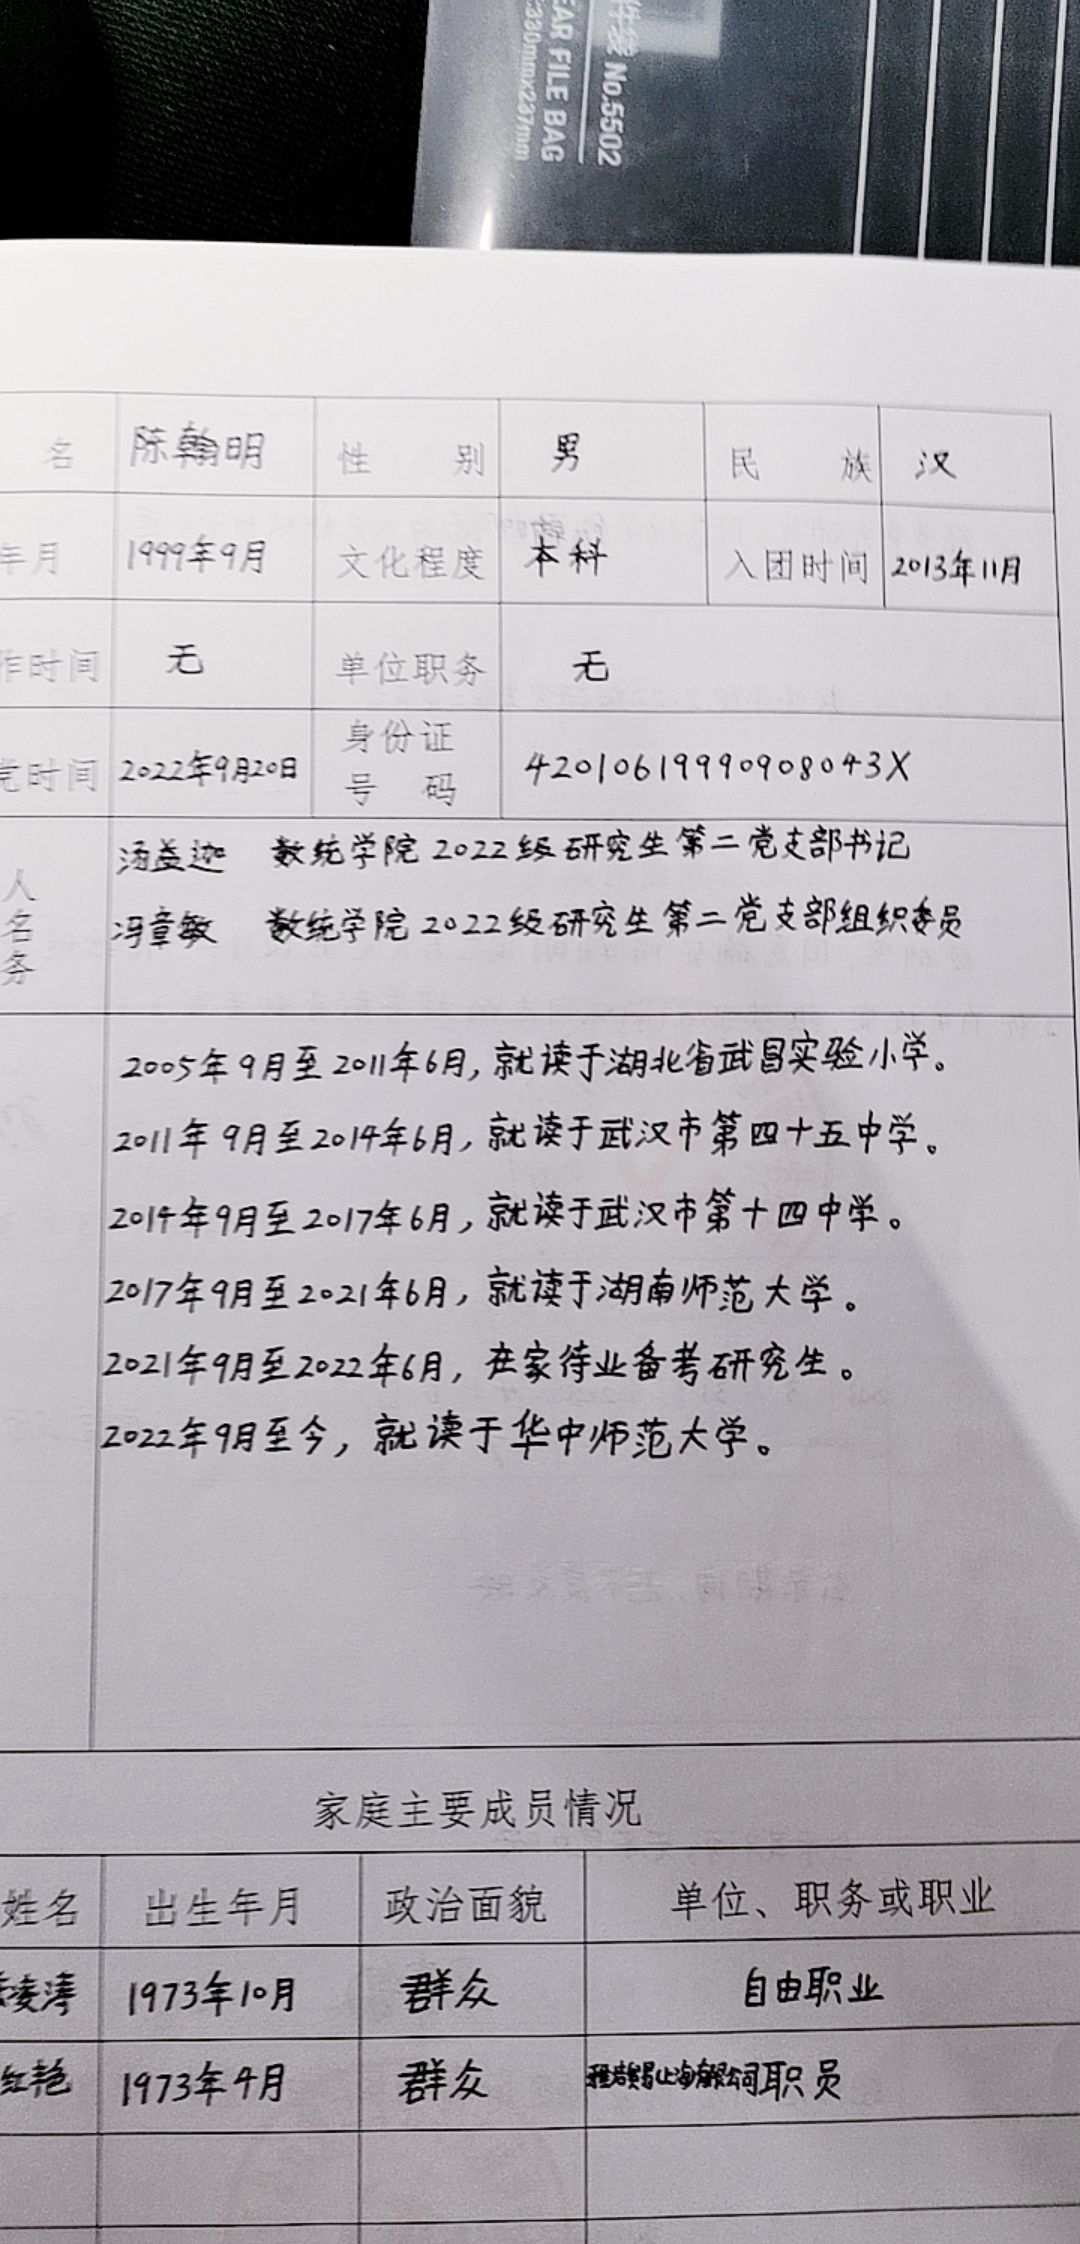 件袋 No.5502
EAR FILE BAG
:330mmx237mm
名 陈翰明 性 别 男 民 族 汉
年月 1999年9月 文化程度 本科 入团时间 2013年11月
作时间 无 单位职务 无
党时间 2022年9月20日 身份证号 码 42010619990908043X
人
名
务
汤益迦 数统学院2022级研究生第二党支部书记
冯章敏 数统学院2022级研究生第二党支部组织委员
2005年9月至2011年6月,就读于湖北省武昌实验小学。
2011年9月至2014年6月,就读于武汉市第四十五中学。
2014年9月至2017年6月,就读于武汉市第十四中学。
2017年9月至2021年6月,就读于湖南师范大学。
2021年9月至2022年6月,在家待业备考研究生。
2022年9月至今,就读于华中师范大学。
家庭主要成员情况
姓名 出生年月 政治面貌 单位、职务或职业
凌涛 1973年10月 群众 自由职业
红艳 1973年4月 群众 贸易(上海)有限公司职员